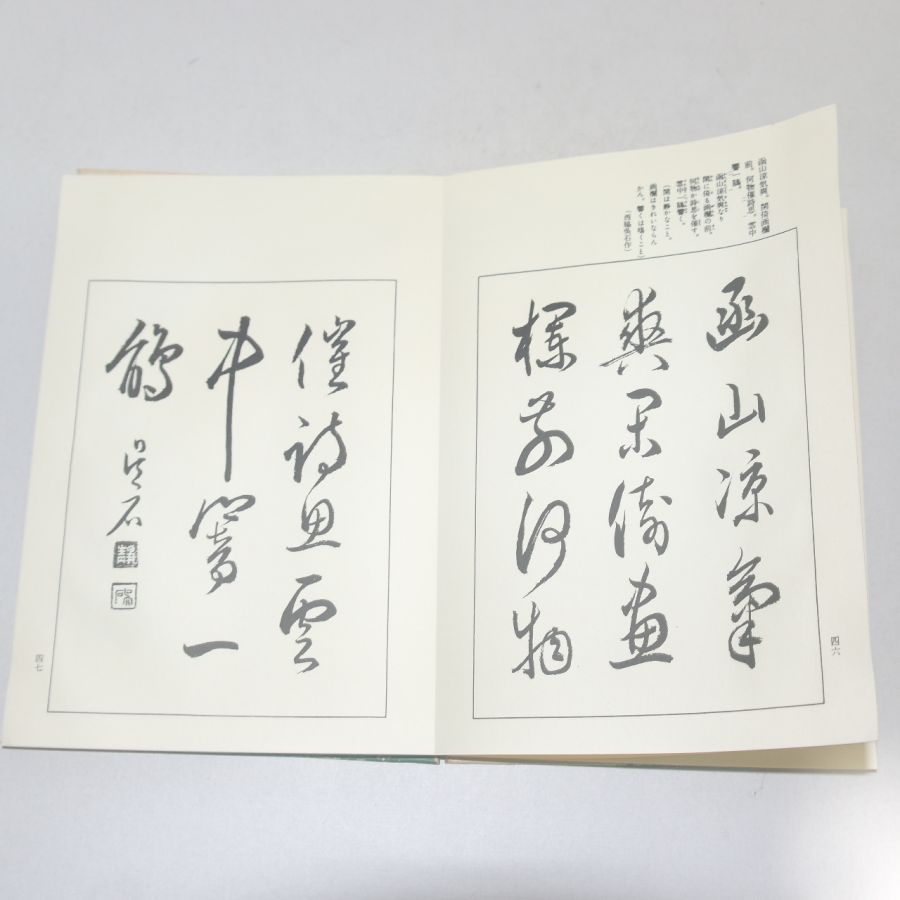 函山涼気爽。閑倚画欄
前。何物催詩思。雲中
響一鵑。
函山涼気爽なり
閑に倚る画欄の前。
何物か詩思を催す。
雲中一鵑響く。
(閑は静かなこと。
画欄はきれいならん
かん。響くは鳴くこと)
(西脇呉石作)
函山凉氣
爽閑倚畫
欄前何物
四六
催詩思雲
中響一
鵑 呉石
四七